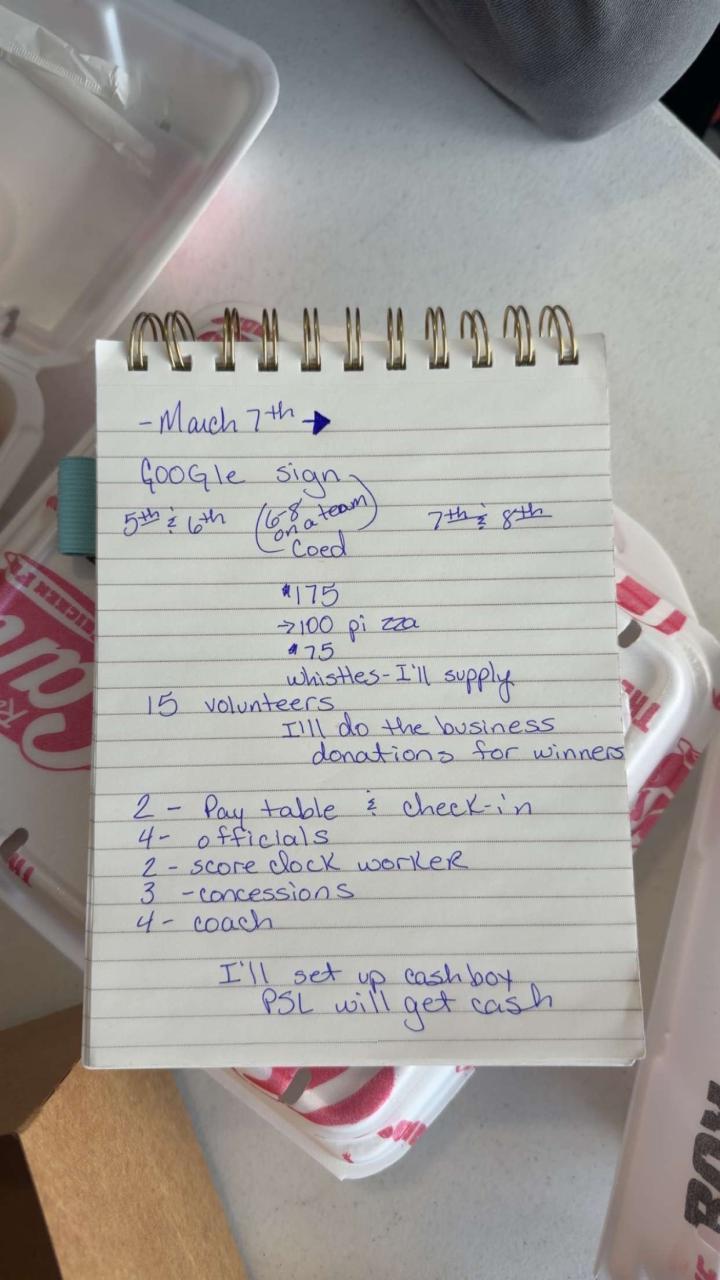 - March 7th →
GOOGle sign
5th & 6th (6-8 on a team) 7th & 8th
Coed
$175
→100 pizza
$75
whistles - I'll supply
15 volunteers
I'll do the business
donations for winners
2 - Pay table & check-in
4 - officials
2 - score clock worker
3 - concessions
4 - coach
I'll set up cashbox
PSL will get cash
CHICKEN FI
Ra
Can
THE
BOX